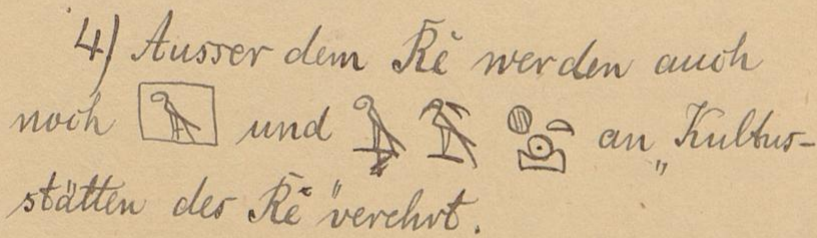 4) Ausser dem Rê werden auch
noch 𓉡 und an „Kultus-
stätten des Rê" verehrt.